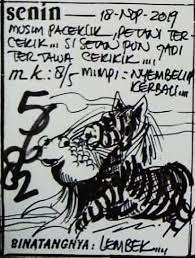 senin 18-NOP-2019
MUSIM PACEKLIK, PETANI TER
CEKIK... SI SETAN PUN JADI
TERTAWA CEKIKIK...
m k: 8/5 MIMPI: NYEMBELIH
KERBAU...
5
2
BINATANGNYA: LEMBEK....